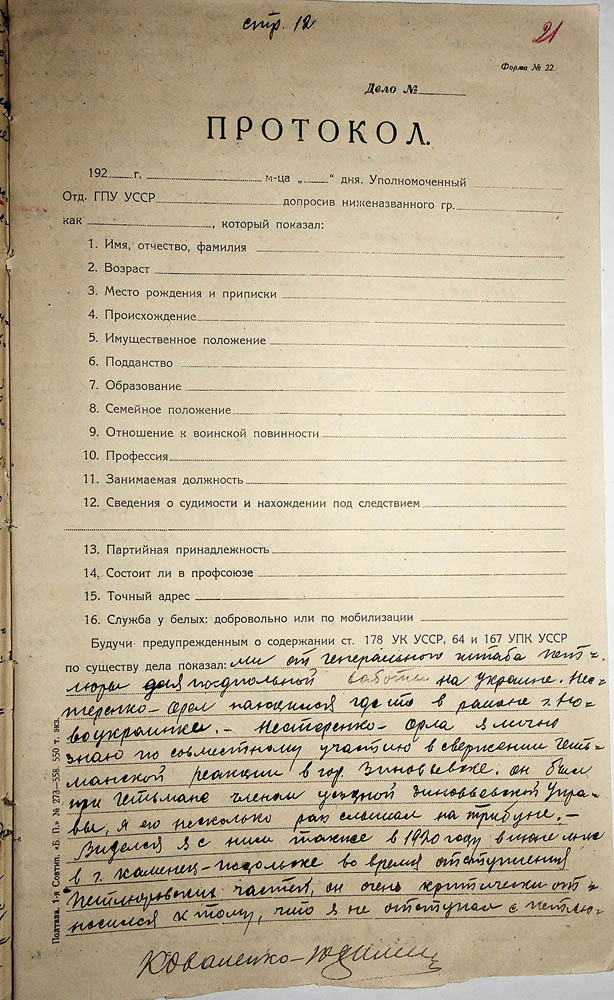 стр. 12
21
Форма № 22.
Дело №
ПРОТОКОЛ.
192 г. м-ца „ “ дня. Уполномоченный
Отд. ГПУ УССР допросив ниженазванного гр.
как , который показал:
1. Имя, отчество, фамилия
2. Возраст
3. Место рождения и приписки
4. Происхождение
5. Имущественное положение
6. Подданство
7. Образование
8. Семейное положение
9. Отношение к воинской повинности
10. Профессия
11. Занимаемая должность
12. Сведения о судимости и нахождении под следствием
13. Партийная принадлежность
14. Состоит ли в профсоюзе
15. Точный адрес
16. Служба у белых: добровольно или по мобилизации
Будучи предупрежденным о содержании ст. 178 УК УССР, 64 и 167 УПК УССР
по существу дела показал: ми от генерального штаба Пет-
люры для подпольной работы на украине. Нес-
теренко-Орел находился где то в районе г. Но-
воукраинке. - Нестеренко-Орла я лично
знаю по совместному участию в свержении геть-
манской реакции в гор. Зиновьевске. он был
при гетьмане членом уездной зиновьевской Упра-
вы, я его несколько раз слышал на трибуне. -
Виделся я с ним также в 1920 году в июне м-це
в г. Каменец-Подольске во время отступления
Петлюровских частей, он очень критически от-
носился к тому, что я не отступал с Петлю-
Полтава. 1-я Совтип. «Б. П.» № 273—558. 550 т. экз.